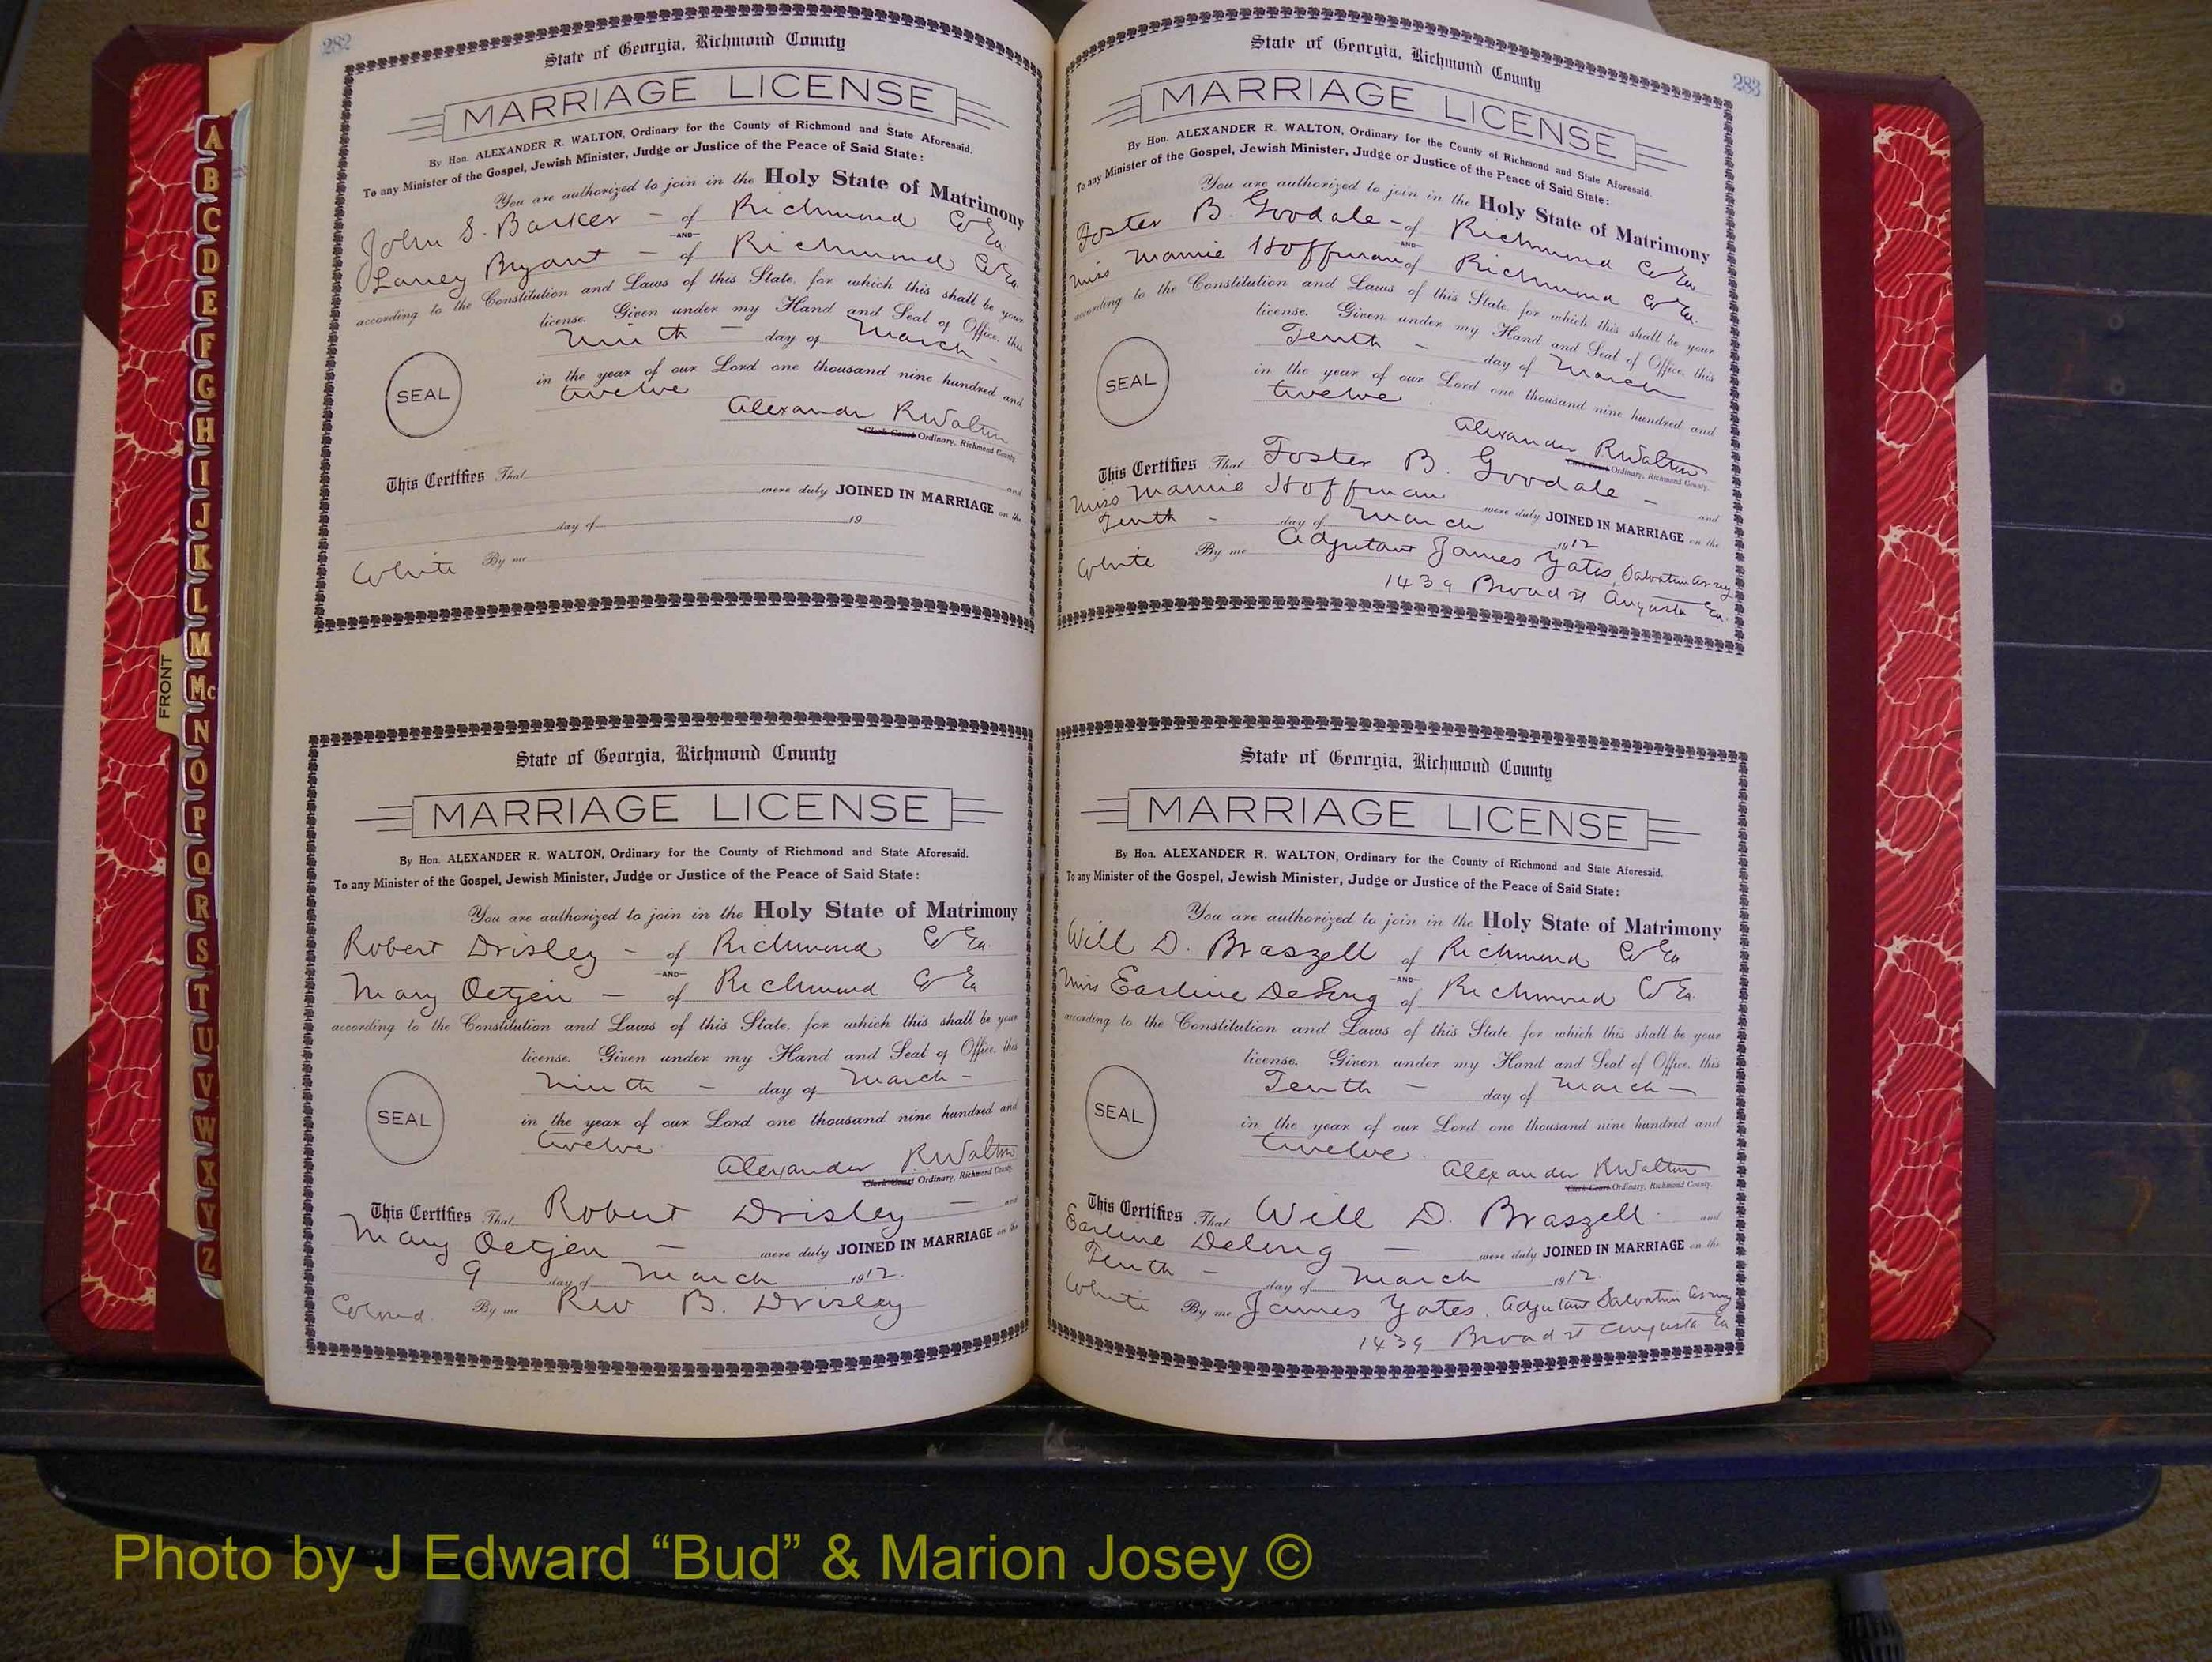 282
State of Georgia, Richmond County
MARRIAGE LICENSE
By Hon. ALEXANDER R. WALTON, Ordinary for the County of Richmond and State Aforesaid.
To any Minister of the Gospel, Jewish Minister, Judge or Justice of the Peace of Said State:
You are authorized to join in the Holy State of Matrimony
John S. Barker - of Richmond Co Ga
-AND-
Laney Bryant - of Richmond Co Ga
according to the Constitution and Laws of this State, for which this shall be your
license. Given under my Hand and Seal of Office, this
Ninth - day of March -
SEAL
in the year of our Lord one thousand nine hundred and
twelve
Alexander R Walton
Clerk Court Ordinary, Richmond County
This Certifies That and
were duly JOINED IN MARRIAGE on the
day of 19
White By me
State of Georgia, Richmond County
MARRIAGE LICENSE
By Hon. ALEXANDER R. WALTON, Ordinary for the County of Richmond and State Aforesaid.
To any Minister of the Gospel, Jewish Minister, Judge or Justice of the Peace of Said State:
You are authorized to join in the Holy State of Matrimony
Robert Drisley - of Richmond Co Ga.
-AND-
Mary Oetjen - of Richmond Co Ga
according to the Constitution and Laws of this State, for which this shall be your
license. Given under my Hand and Seal of Office, this
Ninth - day of March -
SEAL
in the year of our Lord one thousand nine hundred and
twelve
Alexander R Walton
Clerk Court Ordinary, Richmond County
This Certifies That Robert Drisley - and
Mary Oetjen - were duly JOINED IN MARRIAGE on the
9 day of March 1912.
Colored. By me Rev B. Drisley
283
State of Georgia, Richmond County
MARRIAGE LICENSE
By Hon. ALEXANDER R. WALTON, Ordinary for the County of Richmond and State Aforesaid.
To any Minister of the Gospel, Jewish Minister, Judge or Justice of the Peace of Said State:
You are authorized to join in the Holy State of Matrimony
Foster B. Goodale - of Richmond Co Ga
-AND-
Miss Mamie Hoffman of Richmond Co Ga.
according to the Constitution and Laws of this State, for which this shall be your
license. Given under my Hand and Seal of Office, this
Tenth - day of March
SEAL
in the year of our Lord one thousand nine hundred and
twelve
Alexander R Walton
Clerk Court Ordinary, Richmond County
This Certifies That Foster B. Goodale - and
Miss Mamie Hoffman were duly JOINED IN MARRIAGE on the
Tenth - day of March 1912
White By me Adjutant James Yates, Salvation Army
1439 Broad st Augusta Ga.
State of Georgia, Richmond County
MARRIAGE LICENSE
By Hon. ALEXANDER R. WALTON, Ordinary for the County of Richmond and State Aforesaid.
To any Minister of the Gospel, Jewish Minister, Judge or Justice of the Peace of Said State:
You are authorized to join in the Holy State of Matrimony
Will D. Braszell of Richmond Co Ga
-AND-
Miss Earline DeLong of Richmond Co Ga.
according to the Constitution and Laws of this State, for which this shall be your
license. Given under my Hand and Seal of Office, this
Tenth - day of March -
SEAL
in the year of our Lord one thousand nine hundred and
twelve.
Alexander R Walton
Clerk Court Ordinary, Richmond County
This Certifies That Will D. Braszell. and
Earline Delong - were duly JOINED IN MARRIAGE on the
Tenth - day of March 1912.
White By me James Yates. Adjutant Salvation Army
1439 Broad st Augusta Ga
FRONT
A
B
C
D
E
F
G
H
I
J
K
L
M
Mc
N
O
P
Q
R
S
T
U
V
W
X
Y
Z
Photo by J Edward “Bud” & Marion Josey ©